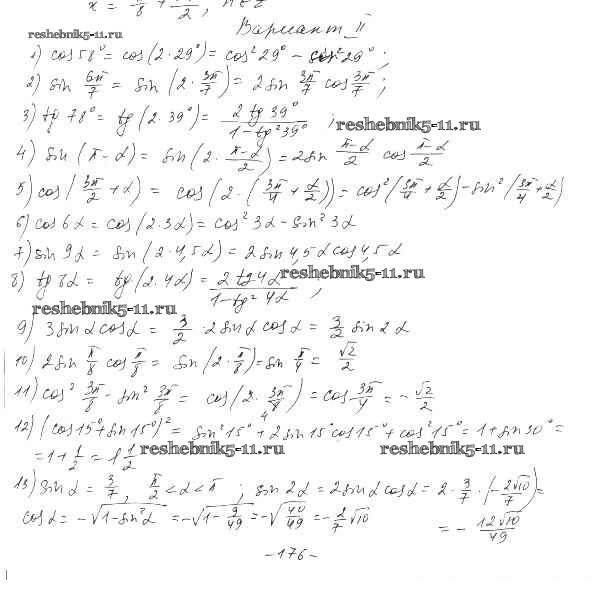 reshebnik5-11.ru
Вариант II
1) cos 58° = cos(2·29°) = cos² 29° − sin² 29°;
2) sin 6π/7 = sin(2·3π/7) = 2 sin 3π/7 cos 3π/7;
3) tg 78° = tg(2·39°) = 2 tg 39° / 1 − tg² 39° ;
reshebnik5-11.ru
4) sin(π − α) = sin(2·(π−α)/2) = 2 sin (π−α)/2 cos (π−α)/2
5) cos(3π/2 + α) = cos(2·(3π/4 + α/2)) = cos²(3π/4 + α/2) − sin²(3π/4 + α/2)
6) cos 6α = cos(2·3α) = cos² 3α − sin² 3α
7) sin 9α = sin(2·4,5α) = 2 sin 4,5α cos 4,5α
8) tg 8α = tg(2·4α) = 2 tg 4α / 1 − tg² 4α ;
reshebnik5-11.ru
reshebnik5-11.ru
9) 3 sin α cos α = 3/2 · 2 sin α cos α = 3/2 sin 2α
10) 2 sin π/8 cos π/8 = sin(2·π/8) = sin π/4 = √2/2
11) cos² 3π/8 − sin² 3π/8 = cos(2·3π/8) = cos 3π/4 = −√2/2
12) (cos 15° + sin 15°)² = sin² 15° + 2 sin 15° cos 15° + cos² 15° = 1 + sin 30° =
= 1 + 1/2 = 1 1/2
reshebnik5-11.ru
reshebnik5-11.ru
13) sin α = 3/7, π/2 < α < π ; sin 2α = 2 sin α cos α = 2·3/7·(−2√10/7) =
cos α = −√(1 − sin² α) = −√(1 − 9/49) = −√(40/49) = −2/7 √10
= −12√10/49
−176−